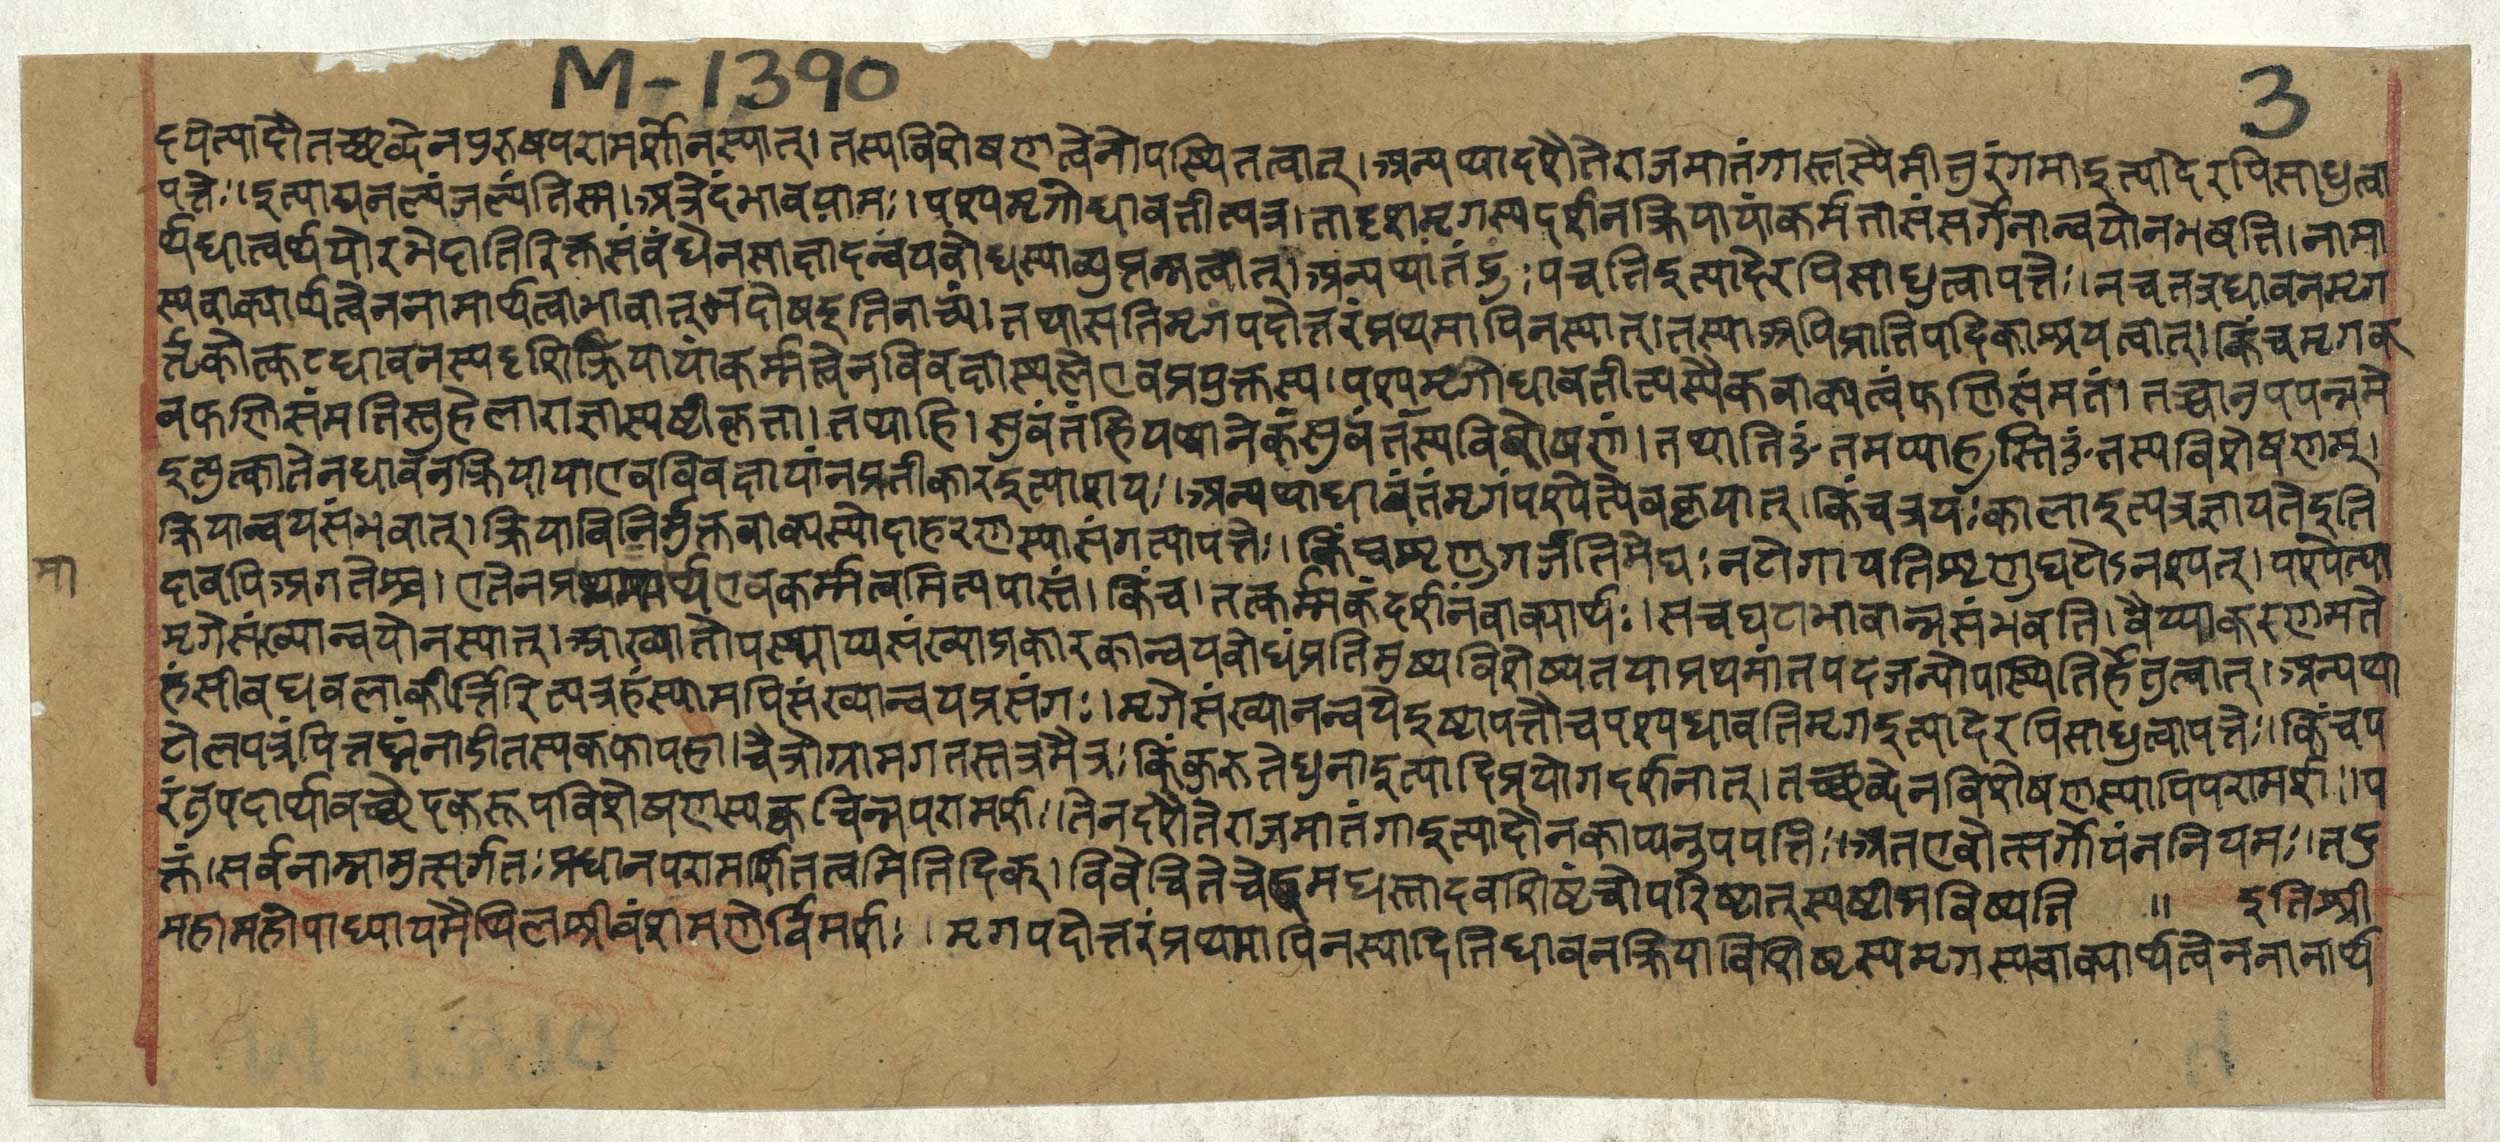 M-1390
3
दयेत्यादौ तच्छब्देन पुरुषपरामर्शो न स्यात् । तस्य विशेषणत्वेनोपस्थितत्वात् । अन्यथा दशैते राजमातंगास्तस्यैमी तुरंगमा इत्यादेरपि साधुत्वा
पत्तेः । इत्याद्यनल्पं जल्पंति स्म । अत्रेदं भावयामः । पश्य मृगो धावतीत्यत्र । तादृशमृगस्य दर्शनक्रियायां कर्मतासंसर्गेनान्वयो न भवति । नामा
र्थधात्वर्थयोरभेदातिरिक्तसंबंधेन साक्षादन्वयबोधस्याव्युत्पन्नत्वात् । अन्यथा तंडुः पचति इत्यादेरपि साधुत्वापत्तेः । न च तत्र धावनमृग
स्य वाक्यार्थत्वेन नामार्थत्वाभावात् न दोष इति वाच्यं । तथा सति मृगपदोत्तरं प्रथमापि न स्यात् । तस्या अपि प्रातिपदिकाश्रयत्वात् । किंच मृगक
र्तृकोत्कटधावनस्य दृशिक्रियायां कर्म्मत्वेन विवक्षास्थले एव प्रयुक्तस्य । पश्य मृगो धावतीत्यस्यैकवाक्यत्वं फणिसंमतं । तच्चानुपपन्नमे
व फणिसंमतिस्तु हेलाराजास्पष्टीकृता । तथाहि । सुवंतं हि यथानेकं सुवंतस्य विशेषणं । तथा तिङंतमप्याहुस्तिङंतस्य विशेषणम् ।
इत्युत्कातेन धावनक्रियाया एव विवक्षायां न प्रतीकार इत्याशयः । अन्यथा धावंतं मृगं पश्येत्येव ब्रूयात् । किंच त्रयः काला इत्यत्र ज्ञायते इति
क्रियान्वयसंभवात् । क्रियाविनिर्मुक्तवाक्यस्योदाहरणस्यासंगत्यापत्तेः । किंच शृणु गर्जति मेघः नटो गायति शृणु घटोऽनश्यत् । पश्येत्या
मा
दावपि अगतेश्च । एतेन प्रथमार्थ एव कर्म्मत्वमित्यपास्तं । किंच । तत्कर्म्मकं दर्शनं वाक्यार्थः । स च घटाभावान्न संभवति । वैय्याकरणमते
मृगे संख्यान्वयो न स्यात् । आख्यातोपस्थाप्यसंख्याप्रकारकान्वयबोधं प्रति मुख्यविशेष्यतया प्रथमांतपदजन्योपस्थितिर्हेतुत्वात् । अन्यथा
हंसीव धवला कीर्त्तिरित्यत्र हंस्यामपि संख्यान्वयप्रसंगः । मृगे संख्यानन्वये इष्टापत्तौ च पश्य धावति मृग इत्यादेरपि साधुत्वापत्तेः । किंच प
टोलपत्रं पित्तघ्नं नाडी तस्य कफापहा । चैत्रो ग्रामगतस्तत्र मैत्रः किं कुरुतेधुना इत्यादिप्रयोगदर्शनात् । तच्छब्देन विशेषणस्यापि परामर्शः । प
रंतु पदार्थावच्छेदकरूपविशेषणस्य क्वचिन्न परामर्शः । तेन दशैते राजमातंगा इत्यादौ न काप्यनुपपत्तिः । अत एवोत्सर्गोयं न नियमः । तदु
क्तं । सर्वनाम्नामुत्सर्गतः प्रधानपरामर्शितत्वमिति दिक् । विवेचितं चैतदधस्तादवशिष्टं चोपरिष्टात् स्पष्टीभविष्यति ॥ इति श्री
महामहोपाध्यायमैथिलश्रीवंशमणेर्विमर्शः । मृगपदोत्तरं प्रथमापि न स्यादिति धावनक्रियाविशिष्टस्य मृगस्य वाक्यार्थत्वेन नानार्थ